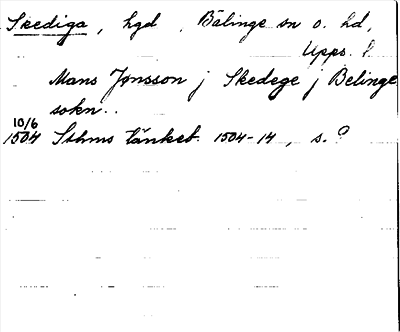 Skediga, hgd, Bälinge sn o. hd,
Upps. l.
Mans Jønsson j Skedege j Belinge
sokn..
10/6
1504 Sthms tänkeb. 1504-14, s. ?